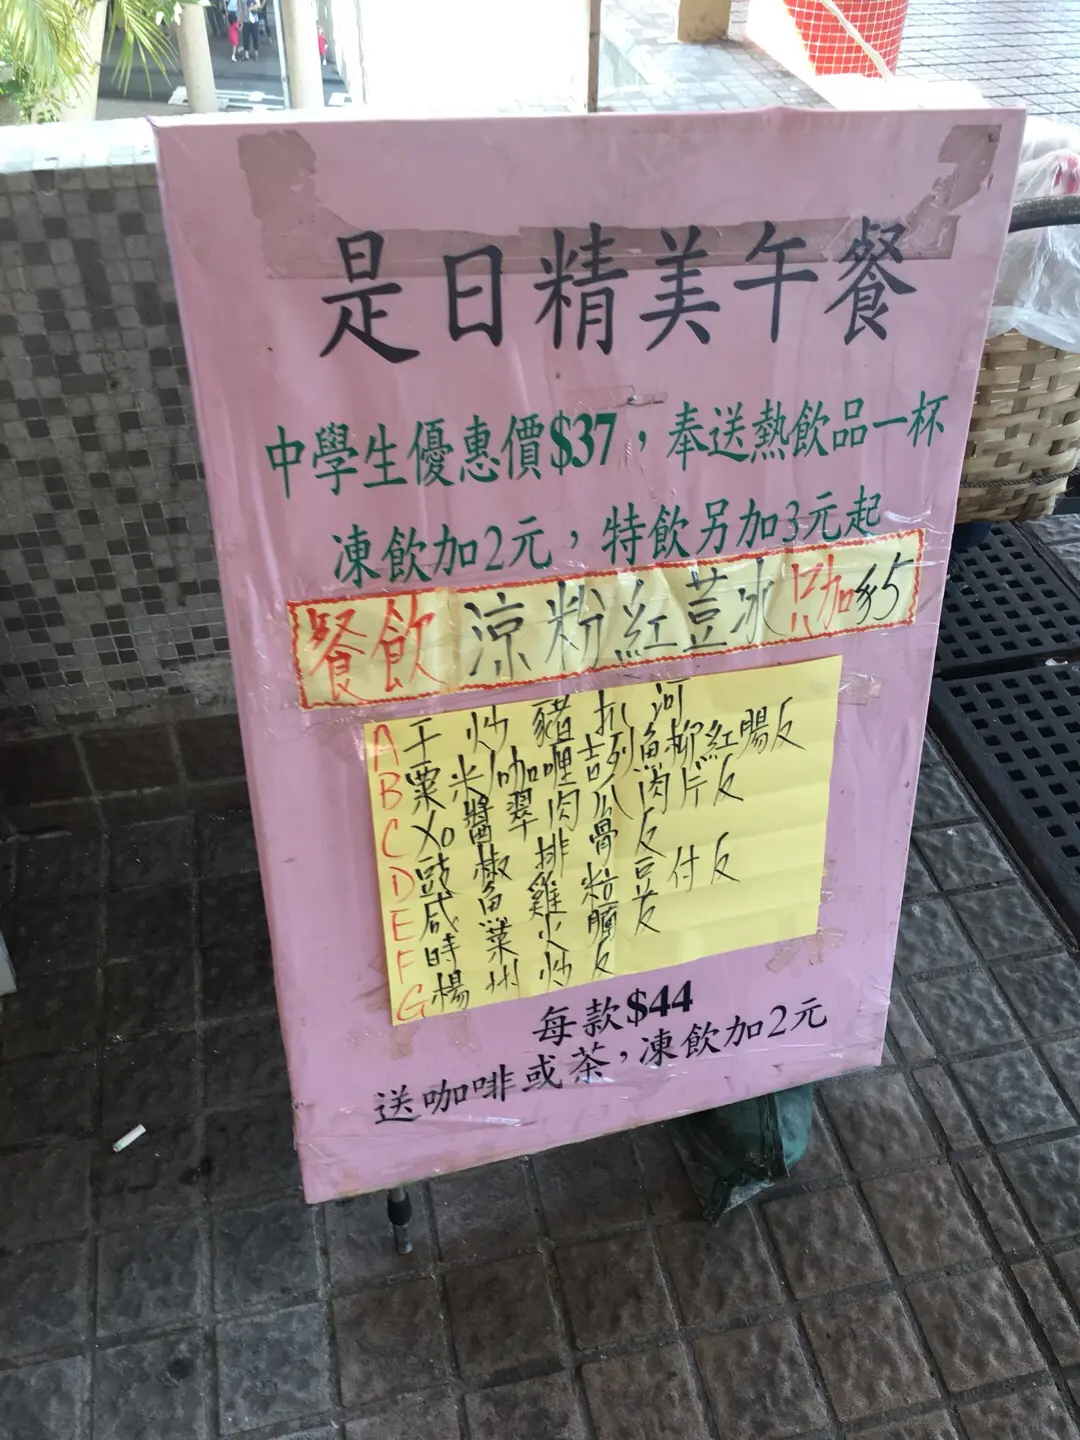 是日精美午餐
中學生優惠價$37，奉送熱飲品一杯
凍飲加2元，特飲另加3元起
餐飲 涼粉紅荳冰 只加$5
A 干炒豬扒河
B 粟米/咖哩吉列魚柳紅腸反
C XO醬翠肉瓜肉片反
D 豉椒排骨反
E 咸魚雞粒豆付反
F 時菜火腩反
G 楊州炒反
每款$44
送咖啡或茶，凍飲加2元